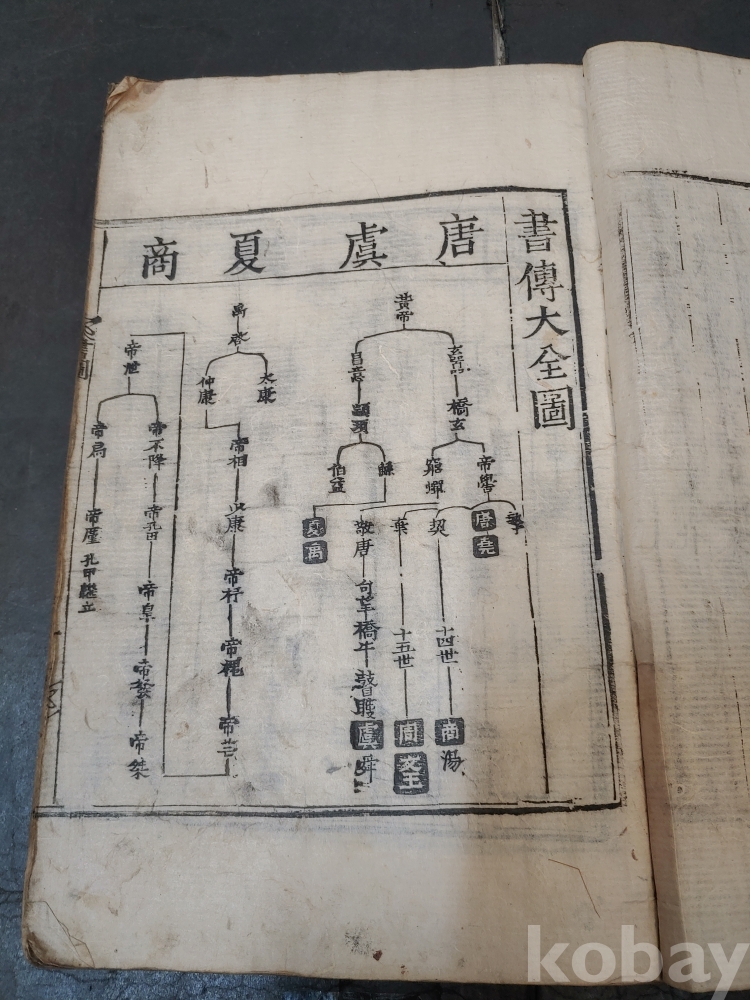 書傳大全圖
唐虞夏商
黃帝
玄囂
橋玄
帝嚳
摯
唐堯
窮蟬
契
十四世
商湯
十五世
周文王
昌意
顓頊
伯益
敬唐
句芒
橋牛
瞽瞍
虞舜
夏禹
禹
啓
太康
仲康
帝相
少康
帝杼
帝槐
帝芒
帝泄
帝不降
帝孔甲
帝皐
帝發
帝桀
帝扃
帝廑
孔甲繼立
kobay